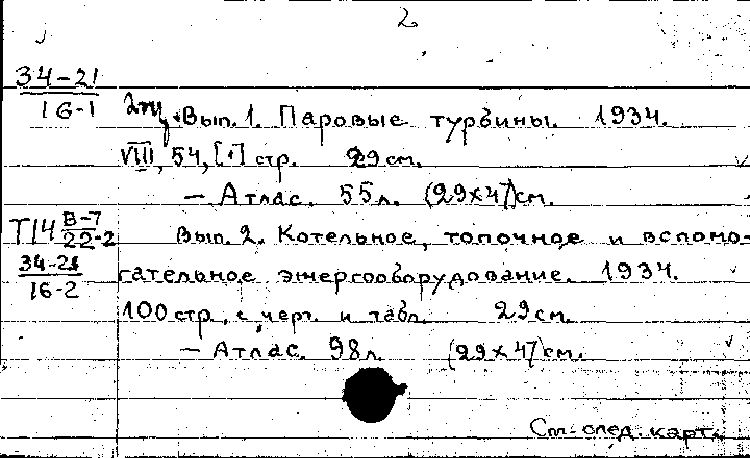 2
34-21
16-1
Вып. 1. Паровые турбины. 1934.
VIII, 54, [1] стр. 29 см.
— Атлас. 55 л. (29×47) см.
Т14 В-7
22-2
Вып. 2. Котельное, топочное и вспомо-
34-21
16-2
гательное энергооборудование. 1934.
100 стр. с черт. и табл. 29 см.
— Атлас. 98 л. (29×47) см.
См. след. карт.